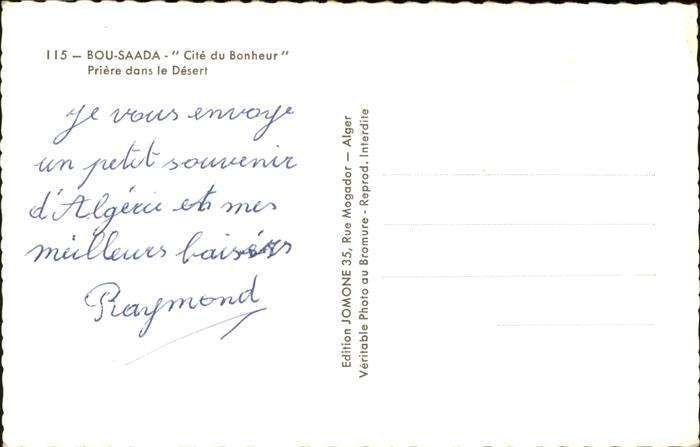 115 — BOU-SAADA - " Cité du Bonheur "
Prière dans le Désert
je vous envoye
un petit souvenir
d'Algérie et mes
meilleurs baisers
Raymond
Edition JOMONE 35, Rue Mogador — Alger
Véritable Photo au Bromure - Reprod. Interdite